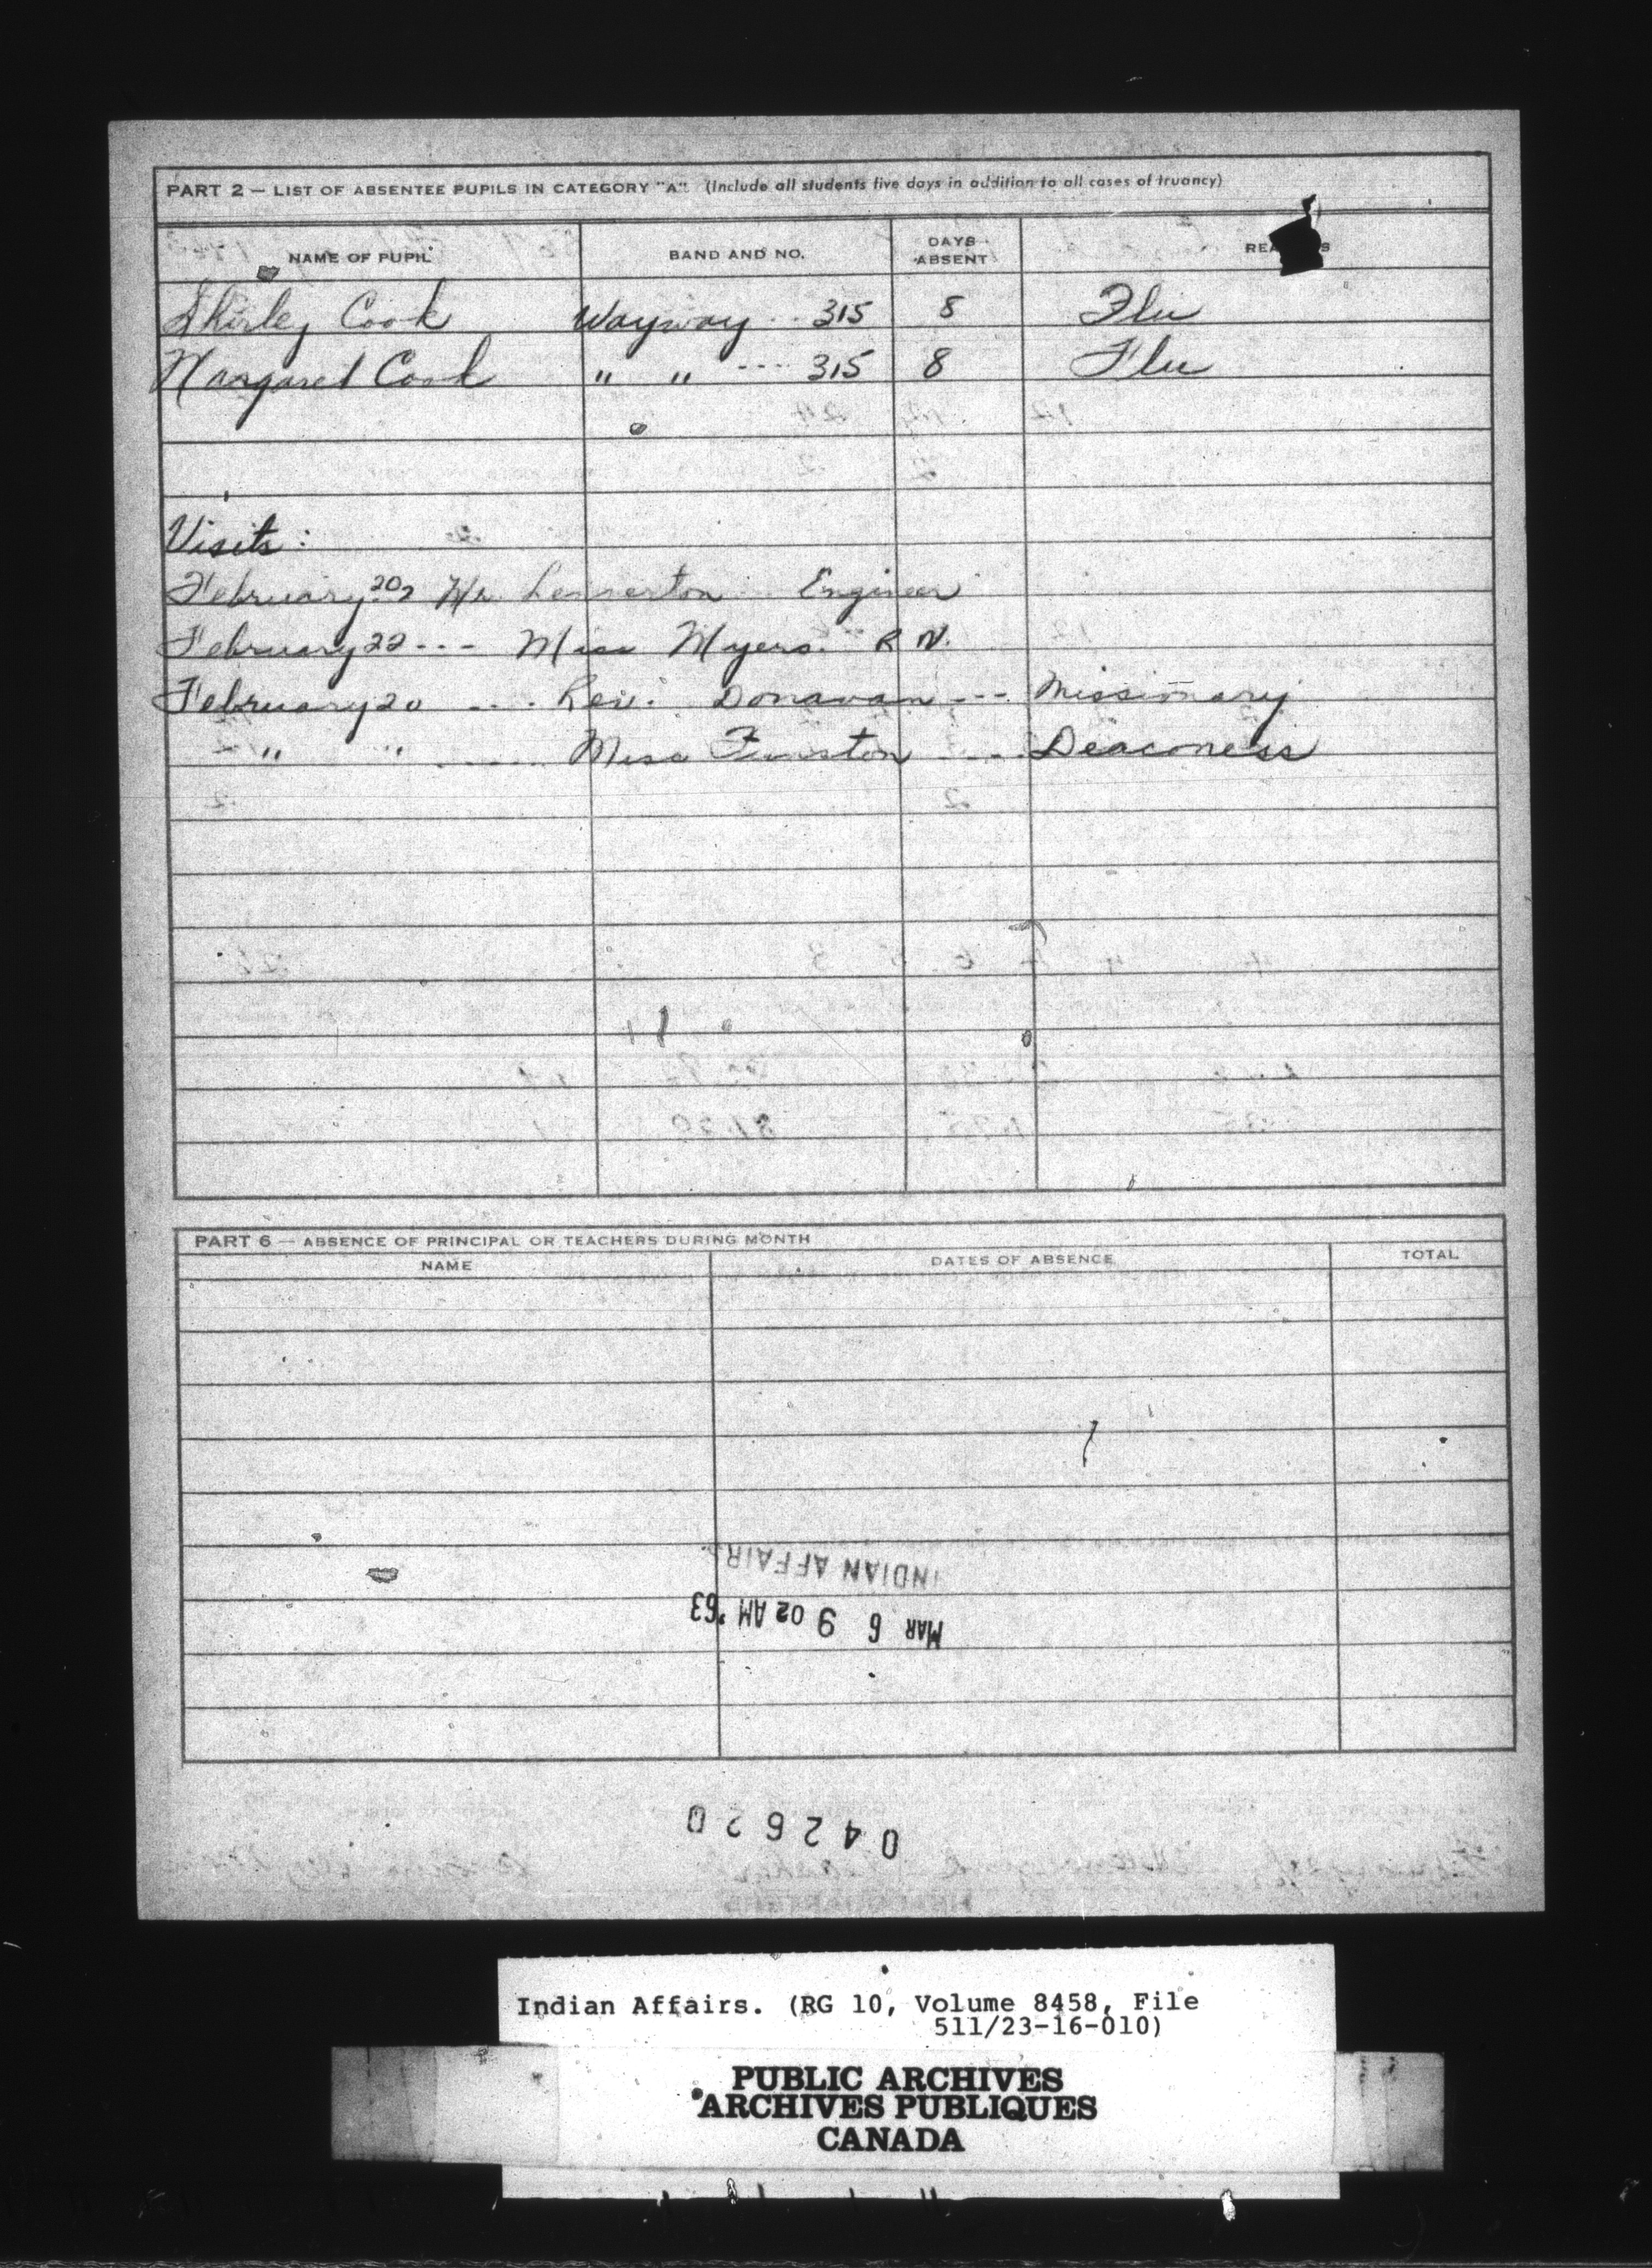 PART 2 — LIST OF ABSENTEE PUPILS IN CATEGORY "A" (Include all students five days in addition to all cases of truancy)
NAME OF PUPIL BAND AND NO. DAYS ABSENT REA S
Shirley Cook Wayway 315 8 Flu
Margaret Cook " " ---- 315 8 Flu
Visits:
February 20, Mr. Engineer
February 22 --- Miss Myers R.N.
February 20 .... Rev. Donavan --- Missionary
" " ..... Miss .... Deaconess
PART 6 — ABSENCE OF PRINCIPAL OR TEACHERS DURING MONTH
NAME DATES OF ABSENCE TOTAL
INDIAN AFFAIRS
MAR 6 9 02 AM '63
042620
Indian Affairs. (RG 10, Volume 8458, File
511/23-16-010)
PUBLIC ARCHIVES
ARCHIVES PUBLIQUES
CANADA